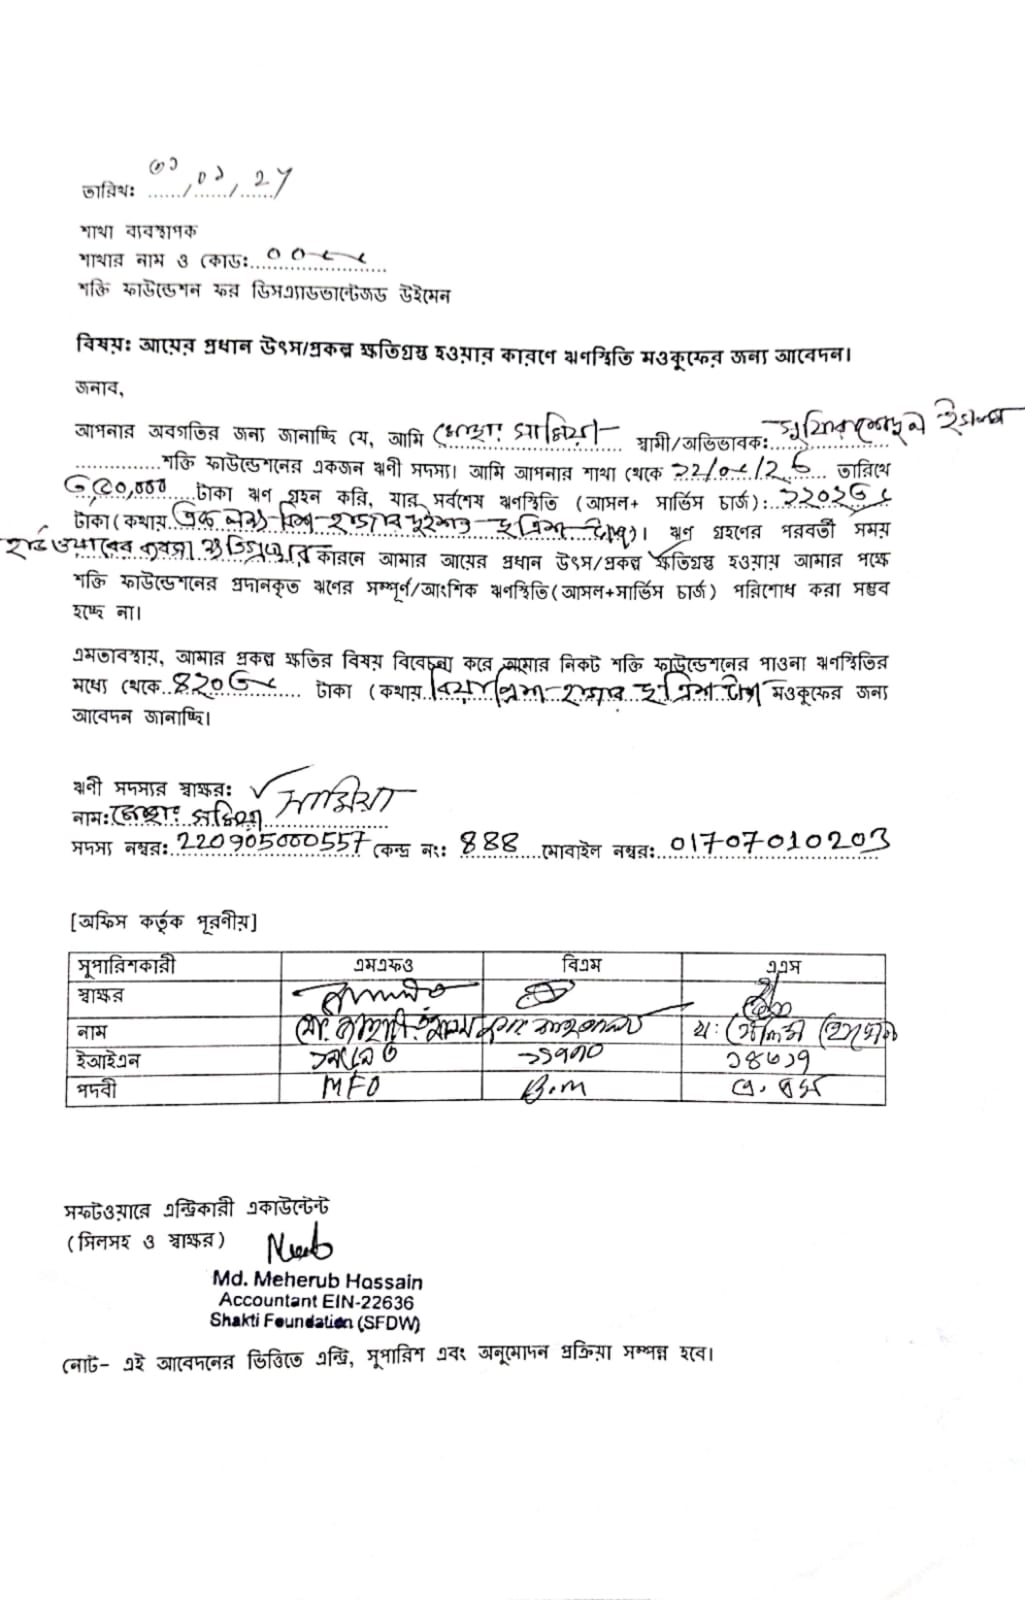 তারিখ: ৩১/০১/2
শাখা ব্যবস্থাপক
শাখার নাম ও কোড:
শক্তি ফাউন্ডেশন ফর ডিসএ্যাডভান্টেজড উইমেন
বিষয়: আয়ের প্রধান উৎস/প্রকল্প ক্ষতিগ্রস্ত হওয়ার কারণে ঋণস্থিতি মওকুফের জন্য আবেদন।
জনাব,
আপনার অবগতির জন্য জানাচ্ছি যে, আমি মোছাঃ সামিয়া স্বামী/অভিভাবক:
শক্তি ফাউন্ডেশনের একজন ঋণী সদস্য। আমি আপনার শাখা থেকে তারিখে
টাকা ঋণ গ্রহন করি, যার সর্বশেষ ঋণস্থিতি (আসল+ সার্ভিস চার্জ):
টাকা (কথায় এক লক্ষ বিশ হাজার দুইশত টাকা)। ঋণ গ্রহণের পরবর্তী সময়
হার্ডওয়ারের ব্যবসা ক্ষতিগ্রস্থের কারনে আমার আয়ের প্রধান উৎস/প্রকল্প ক্ষতিগ্রস্ত হওয়ায় আমার পক্ষে
শক্তি ফাউন্ডেশনের প্রদানকৃত ঋণের সম্পূর্ণ/আংশিক ঋণস্থিতি(আসল+সার্ভিস চার্জ) পরিশোধ করা সম্ভব
হচ্ছে না।
এমতাবস্থায়, আমার প্রকল্প ক্ষতির বিষয় বিবেচনা করে আমার নিকট শক্তি ফাউন্ডেশনের পাওনা ঋণস্থিতির
মধ্যে থেকে টাকা (কথায় হাজার টাকা মওকুফের জন্য
আবেদন জানাচ্ছি।
ঋণী সদস্যর স্বাক্ষর: সামিয়া
নাম: মোছাঃ সামিয়া
সদস্য নম্বর: 220905000557 কেন্দ্র নং: ৪৪৪ মোবাইল নম্বর: 01707010203
[অফিস কর্তৃক পূরণীয়]
সুপারিশকারী এমএফও বিএম এএস
স্বাক্ষর
নাম মো.
ইআইএন ১৪৬১৭
পদবী MFO B.M এ. এস
সফটওয়ারে এন্ট্রিকারী একাউন্টেন্ট
(সিলসহ ও স্বাক্ষর)
Md. Meherub Hossain
Accountant EIN-22636
Shakti Foundation (SFDW)
নোট- এই আবেদনের ভিত্তিতে এন্ট্রি, সুপারিশ এবং অনুমোদন প্রক্রিয়া সম্পন্ন হবে।